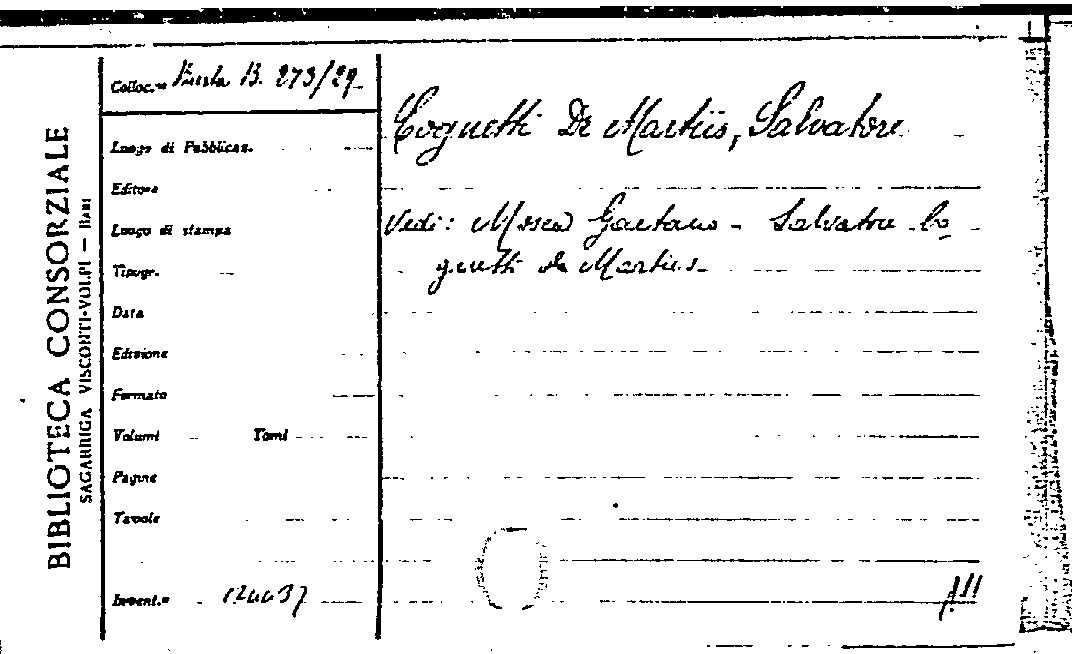 BIBLIOTECA CONSORZIALE
SAGARRIGA VISCONTI-VOLPI — BARI
Colloc.ne Busta B. 273/29
Luogo di Pubblicaz.
Editore
Luogo di stampa
Tipogr.
Data
Edizione
Formato
Volumi Tomi
Pagine
Tavole
Invent.le
Cognetti De Martiis, Salvatore
Vedi: Mosca Gaetano - Salvatore Co
gnetti de Martiis.